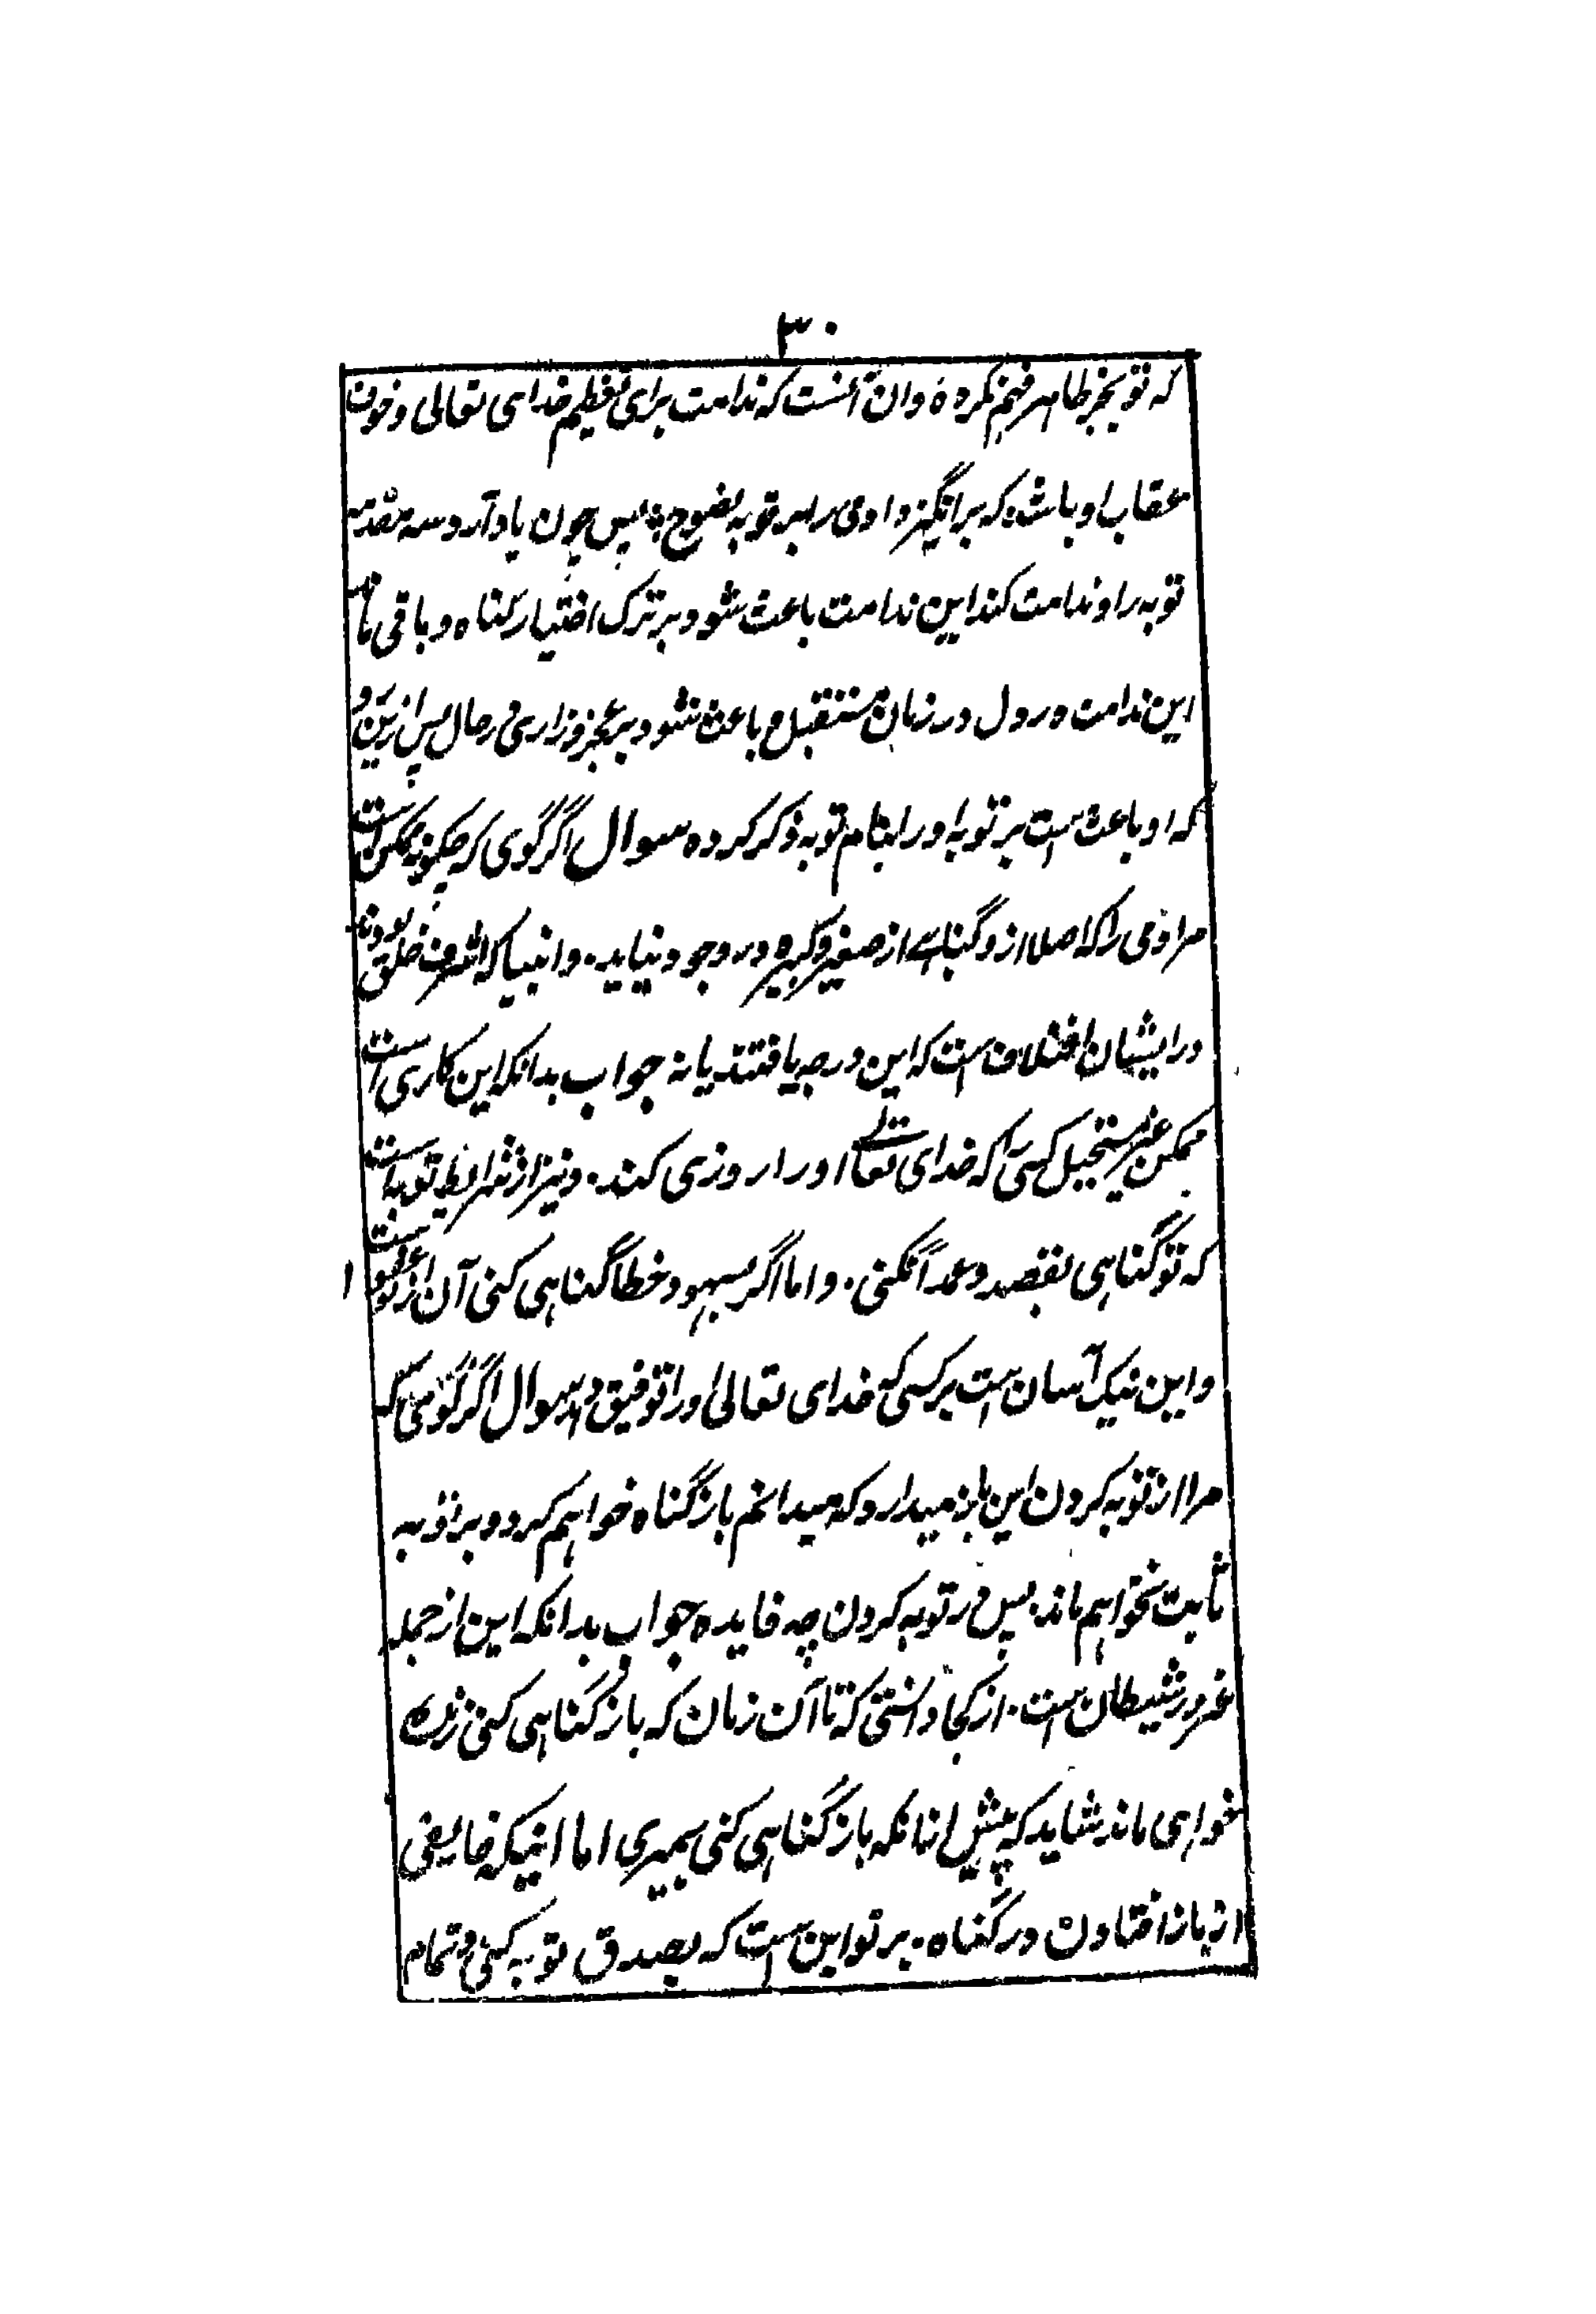 ۳۰
که تو بجز ظاهر فهم نکرده وان آنست که ندامت برای تعظیم خدای تعالی و خوف
عقاب او باشد که برانگیزد آدمی را بر توبه نصوح پس چون یاد آرد سه مقدمه
توبه را و ندامت کند این ندامت باعث شود بر ترک اختیار گناه و باقی ماند
این ندامت در دل در زمان مستقبل باعث شود بر عجز و زاری در حال پس ازین رو
که او باعث است بر توبه او را بنام توبه ذکر کرده سوال اگر گوی که چگونه ممکن است
مر آدمی را که اصلا از و گناهے از صغیر و کبیره در وجود نیاید. و انبیا که اشرف خلق بودند
در ایشان اختلاف است که این درجه یافتند یا نه جواب بدانکه این کاری است
ممکن غیر مستحیل کسی را که خدای تعالے او را روزی کند. و نیز از شرایط توبه است
که تو گناهی بقصد و عمداً نکنی. و اما اگر بسهو و خطا گناهی کنی آن از تو عفو است
و این نیک آسان است بر کسی که خدای تعالی او را توفیق دهد سوال اگر گوئی که
مرا از توبه کردن این باز میدارد که میدانم باز گناه خواهم کرد و بر توبه
ثابت نخواهم ماند پس در توبه کردن چه فایده جواب بدانکه این از جمله
غرور شیطان است. از کجا دانستی که تا آن زمان که باز گناهی کنی زنده
خواهی ماند شاید که پیش ازانکه باز گناهی کنی بمیری اما اینکه خایفی
از باز افتادن در گناه. بر تو این است که بصدق توبه کنی و تمام